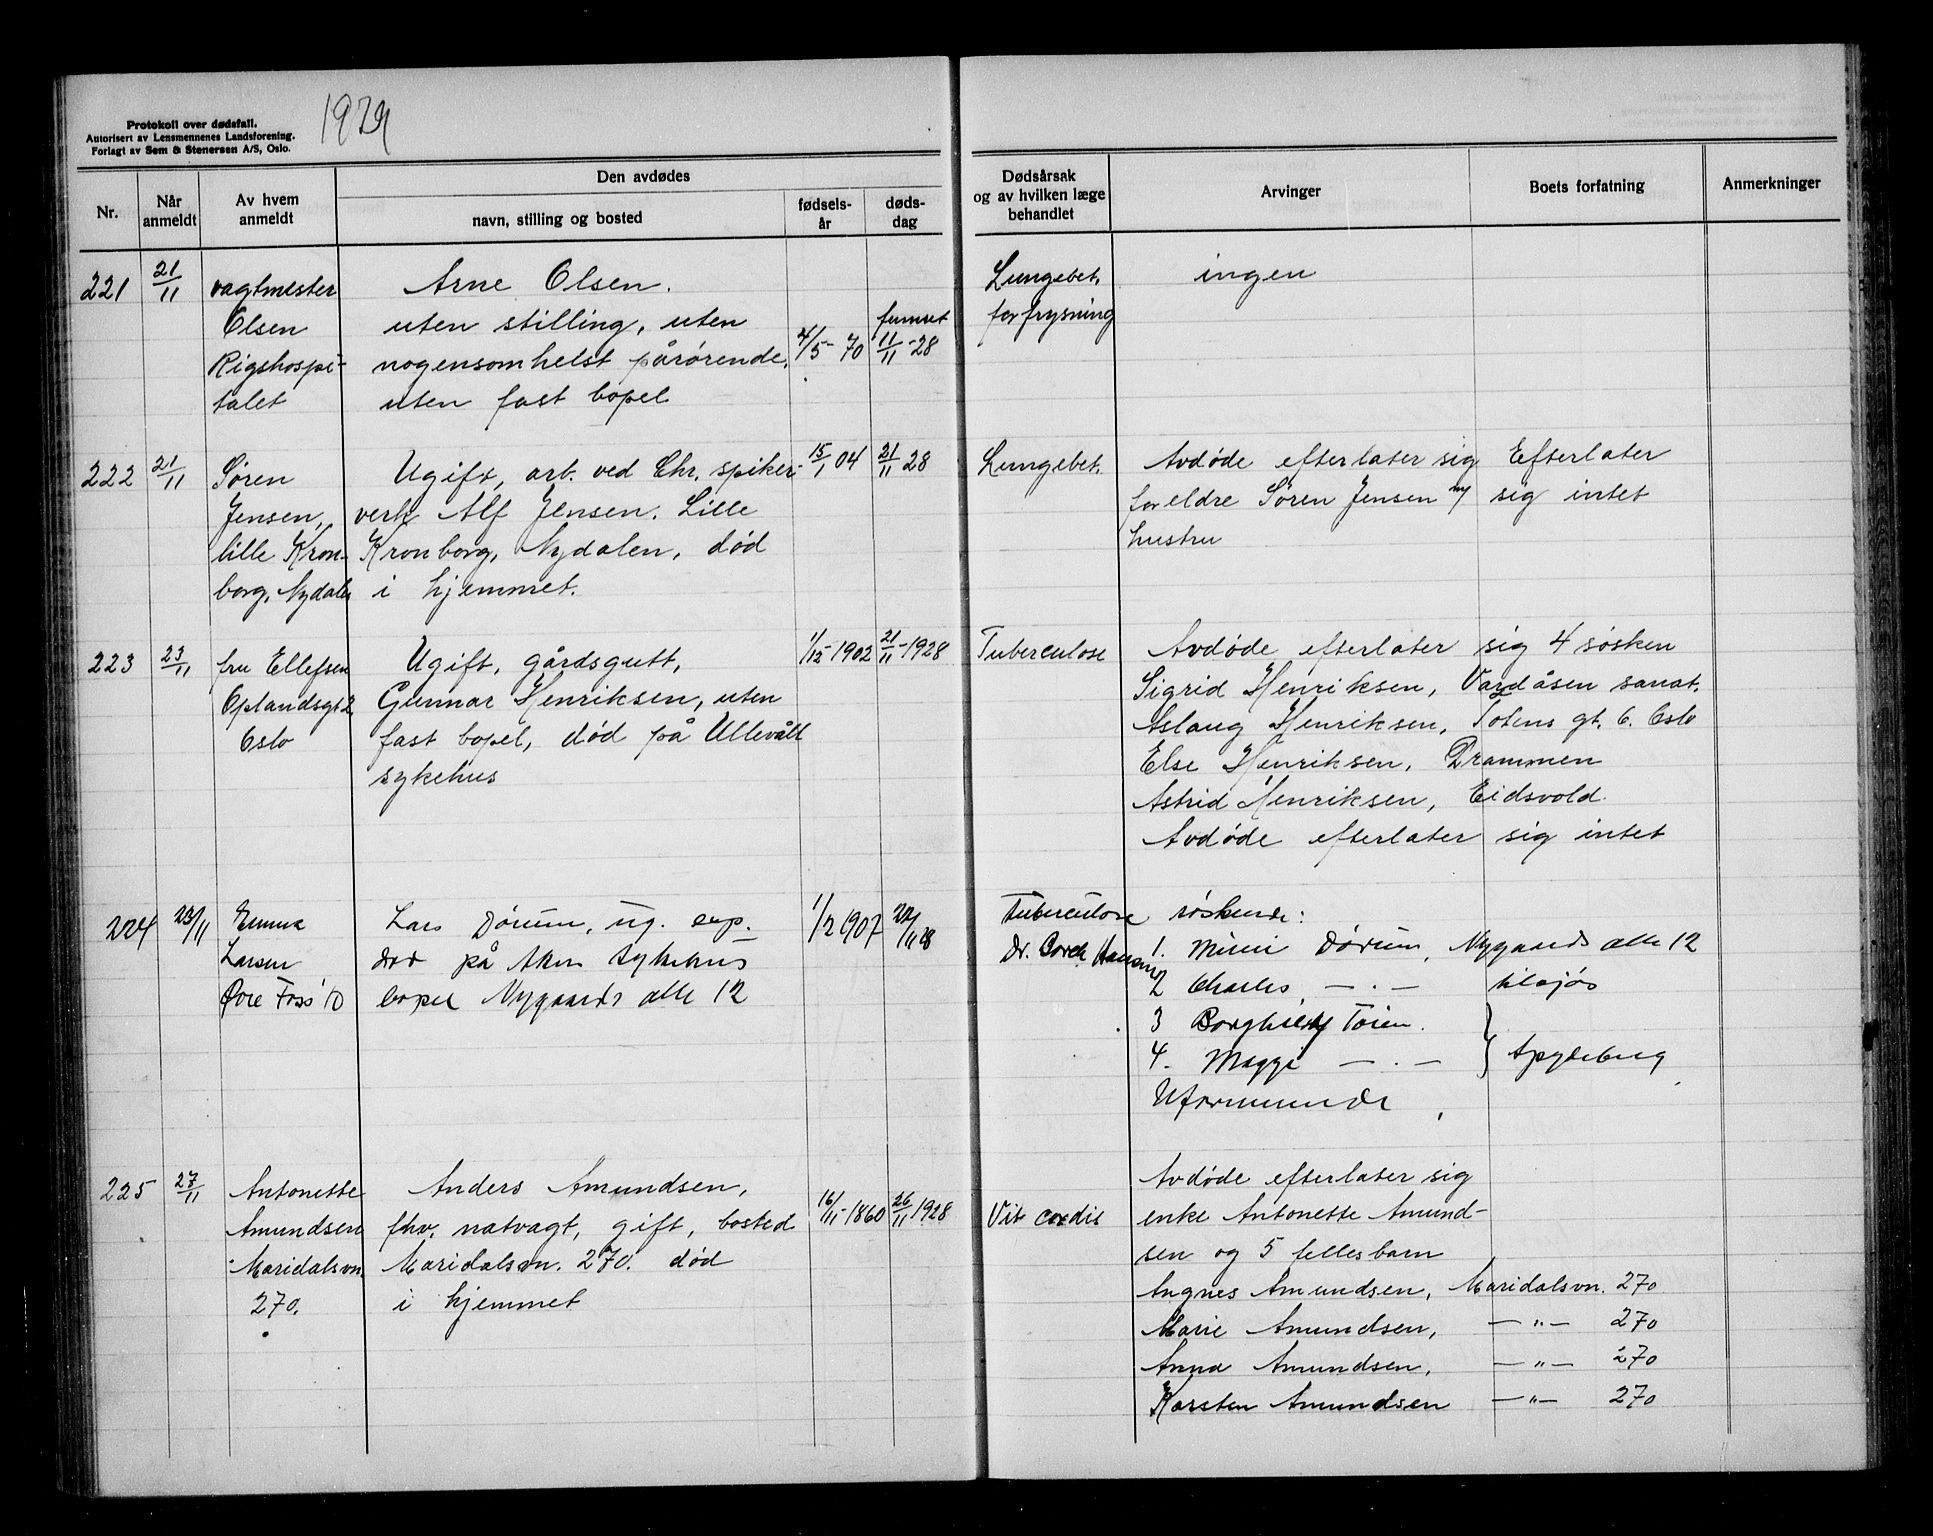 Protokoll over dødsfall.
Autorisert av Lensmennenes Landsforening.
Forlagt av Sem & Stenersen A/S, Oslo.
Nr.
Når anmeldt
Av hvem anmeldt
Den avdødes
navn, stilling og bosted
fødselsår
dødsdag
Dødsårsak og av hvilken læge behandlet
Arvinger
Boets forfatning
Anmerkninger
221
21/11
vagtmester
Olsen
Rigshospi-
talet
Arne Olsen.
uten stilling, uten
nogensomhelst pårørende,
uten fast bopel
4/5-70
funnet
11/11-28
Lungebet.
forfrysning
ingen
222
21/11
Søren
Jensen,
lille Kron-
borg, Nydalen
Ugift, arb. ved Chr. spiker-
verk Alf Jensen. Lille
Kronborg, Nydalen, død
i hjemmet.
15/1 04
21/11 28
Lungebet.
Avdøde efterlater sig
foreldre Søren Jensen
hustru
Efterlater
sig intet
223
23/11
fru Ellefsen
Oplandsgt 2
Oslo
Ugift, gårdsgutt,
Gunnar Henriksen, uten
fast bopel, død på Ullevåll
sykehus
1/12-1902
21/11-1928
Tuberculose
Avdøde efterlater sig 4 søsken
Sigrid Henriksen, Vardåsen sanat.
Aslaug Henriksen, Totens gt. 6. Oslo
Else Henriksen, Drammen
Astrid Henriksen, Eidsvold.
Avdøde efterlater sig intet
224
23/11
Emma
Larsen
Øvre Foss 10
Lars Dørum, ug. exp.
død på Aker sykehus
bopel Nygaards alle 12
1/2 1907
22/11 28
Tuberculose
Dr. Borch Hansen
søskende:
1. Mimi Dørum, Nygaards alle 12
2 Charles — . — tilsjøs
3 Borghild Tøien.
4. Maggi — . — } Spydeberg
Uformuende
225
27/11
Antonette
Amundsen
Maridalsvn.
270.
Anders Amundsen,
fhv. natvagt, gift, bosted
Maridalsvn. 270. død
i hjemmet
16/11-1860
26/11 1928
Vit cordis
Avdøde efterlater sig
enke Antonette Amund-
sen og 5 fellesbarn
Angnes Amundsen, Maridalsvn. 270
Marie Amundsen, — " — 270
Anna Amundsen, — " — 270
Karsten Amundsen — " — 270